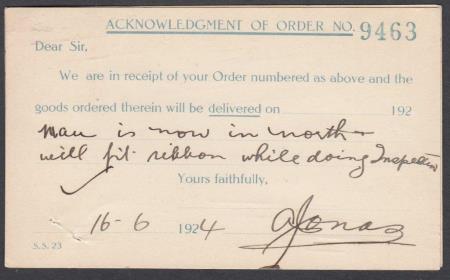 ACKNOWLEDGMENT OF ORDER NO. 9463
Dear Sir,
We are in receipt of your Order numbered as above and the
goods ordered therein will be delivered on 192
Man is now in north
will fit ribbon while doing Inspection
Yours faithfully,
16-6 1924 A Jonas
S.S. 23